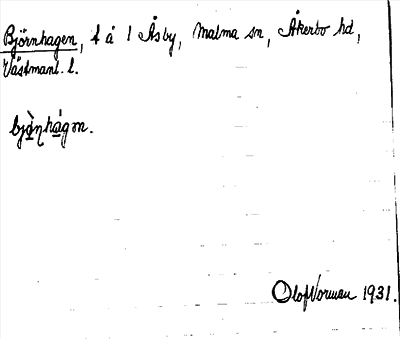 Björnhagen, t å 1 Åsby, Malma sn, Åkerbo hd,
Västmanl. l.
bjὼn̨hágεn.
Olof Norman 1931.